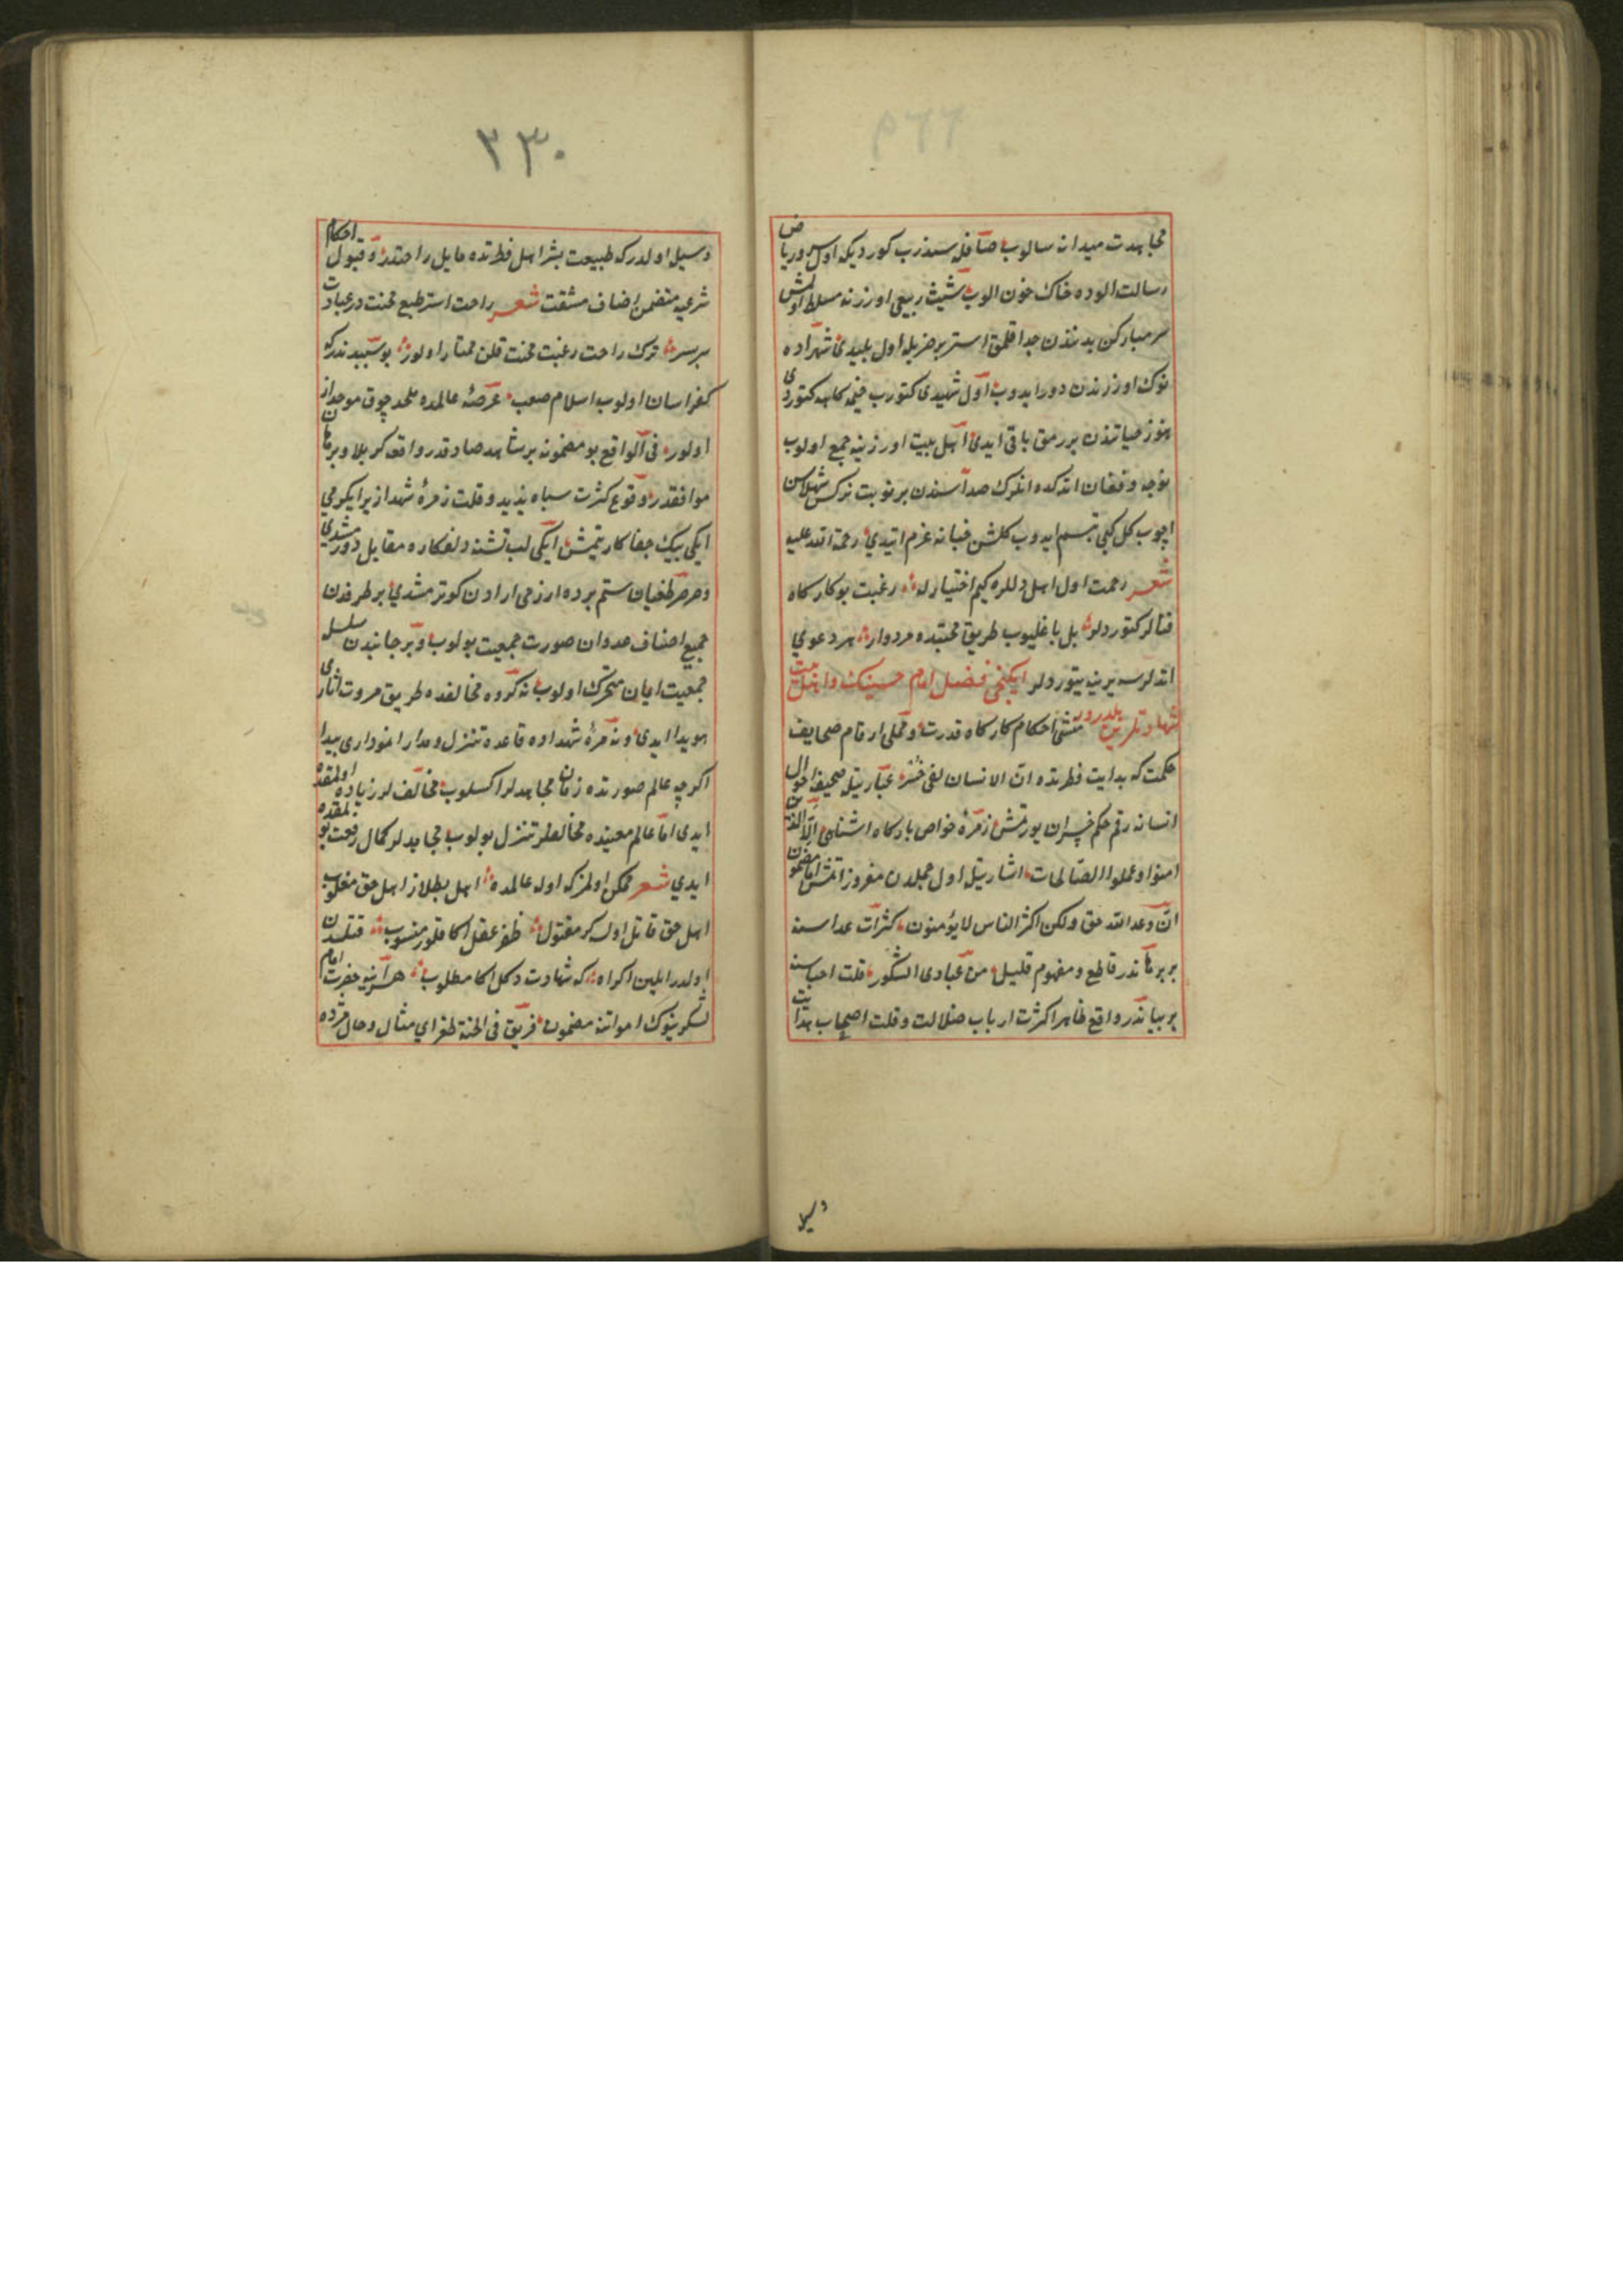 مجاهدت میدانه سالوب صف قلبه سندرب کوردیکه اول سرو ریاض
رسالت الوده خاک خون الوب شیث ربیعی اوزرنه مسلط اولمش
سر مبارکن بدنندن جدا قلمق استر بر ضربله اول پلیدی شهزاده
نوک اوزرندن دور ایدوب اول شهیدی کتورب خیمه کاهه کتوردی
هنوز حیاتندن بر رمق باقی ایدی اهل بیت اوزرینه جمع اولوب
نوحه و فغان اتدکده انلرک صداسندن بر نوبت نرکس شهلاسن
اچوب کل کبی تبسم ایدوب کلشن جنانه عزم اتیدی رحمة الله علیه
شعر رحمت اول اهل دللره کیم اختیارله رغبت بو کارکاه
فنا لر کتوردلر بل باغلیوب طریق محبتده مردوار هر دعوی
اتدلرسه یرینه یتوردلر ایکنجی فصل امام حسینک و اهل بیت
شهادتلرین بلدرور منشی احکام کارکاه قدرت و مملی ارقام صحایف
حکمت که بدایت فطرتده ان الانسان لفی خسر عبارتیله صحیفه احوال
انسانه رقم حکم خسران یورتمش زمره خواص بارکاه اشنای الا الذین
امنوا و عملوا الصالحات اشارتیله اول جمله دن مفروز اتمش اما مضمون
ان وعد الله حق ولکن اکثر الناس لا یؤمنون کثرات عداسنه
بر برهاندر قاطع و مفهوم قلیل من عبادی الشکور قلت احباسنه
بر بیاندر واقع ظاهرا کثرت ارباب ضلالت و قلت اصحاب هدایت
دسیل
٢٣٠
دسیل اولدرکه طبیعت بشر اصل فطرتده مایل راحتدر و قبول احکام
شرعیه متضمن اضاف مشقت شعر راحت استر طبع محنت در عبادت
سربسر ترک راحت رغبت محنت قلن ممتاز اولور بو سببدندرکه
کفر اسان اولوب اسلام صعب عرصه عالمده ملحد چوق موحد از
اولور فی الواقع بو مضمونه بر شاهد صادقدر واقعه کربلا و برهان
موافقدر وقوع کثرت سپاه یزید و قلت زمره شهدا زیرا یکرمی
ایکی بیک جفاکار یتمش ایکی لب تشنه دلفکاره مقابل دورمشدی
و صرصر طغیان ستم پرده ارزمی ارادن کوترمشدی بر طرفدن
جمیع اصناف عدوان صورت جمعیت بولوب و بر جانبدن سلسله
جمعیت ایمان متحرک اولوب نه کروه مخالفده طریق مروت اثاری
هویدا ایدی و نه زمره شهداده قاعده تنزل و مدارا نموداری پیدا
اکرچه عالم صورتده زمان زمان مجاهدلر اکسلوب مخالفلر زیاده اولمقده
ایدی اما عالم معنیده مخالفلر تنزل بولوب مجاهدلر کمال رفعت بولمقده
ایدی شعر ممکن اولمز که اوله عالمده اهل بطلان اهل حق مغلوب
اهل حق قاتل اولسه کر مقتول ظفر عقل اکا قلور منسوب قتلدن
اولدر ایلین اکراه که شهادت دکل اکا مطلوب هر آینه حضرت امام
لشکرینوک امواتنه مضمون فریق فی الجنة طغرای مثال و حال مژده